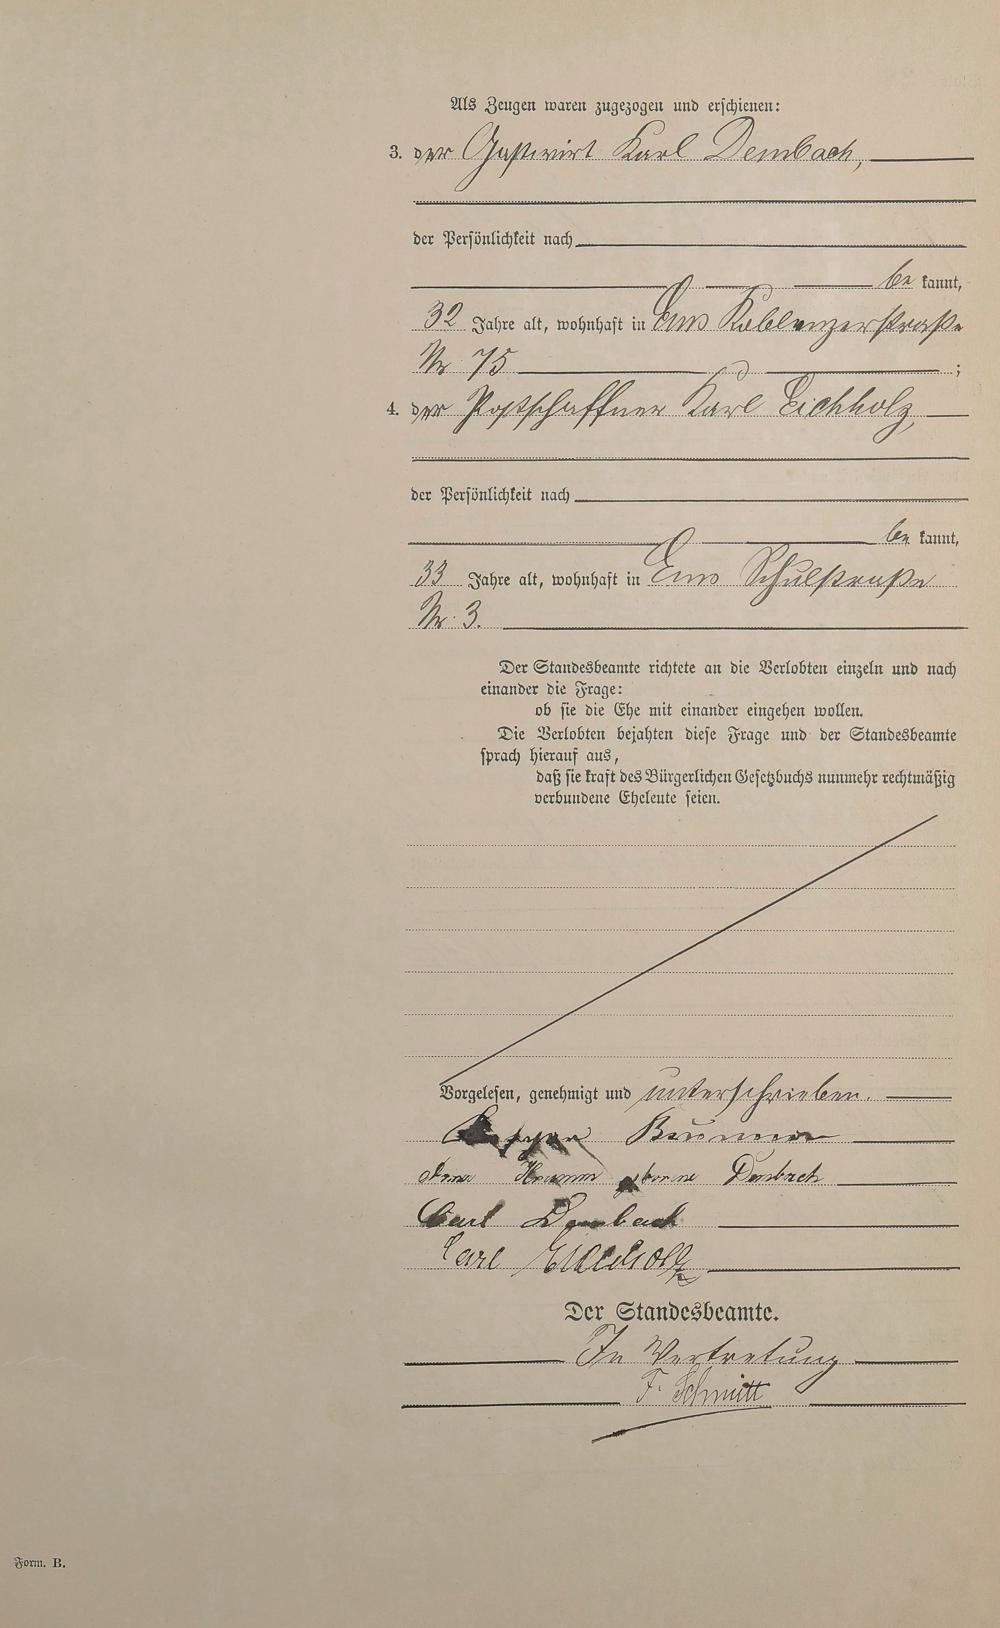 Als Zeugen waren zugezogen und erschienen:
3. der Gastwirt Karl Dembach,
der Persönlichkeit nach
be kannt,
32 Jahre alt, wohnhaft in Ems Koblenzerstraße
Nr. 75 ;
4. der Postschaffner Karl Eichholz,
der Persönlichkeit nach
be kannt,
33 Jahre alt, wohnhaft in Ems Schulstraße
Nr. 3.
Der Standesbeamte richtete an die Verlobten einzeln und nach
einander die Frage:
ob sie die Ehe mit einander eingehen wollen.
Die Verlobten bejahten diese Frage und der Standesbeamte
sprach hierauf aus,
daß sie kraft des Bürgerlichen Gesetzbuchs nunmehr rechtmäßig
verbundene Eheleute seien.
Vorgelesen, genehmigt und unterschrieben.
geborne Dembach
Carl Dembach
Carl Eichholz
Der Standesbeamte.
In Vertretung
F. Schmitt
Form. B.